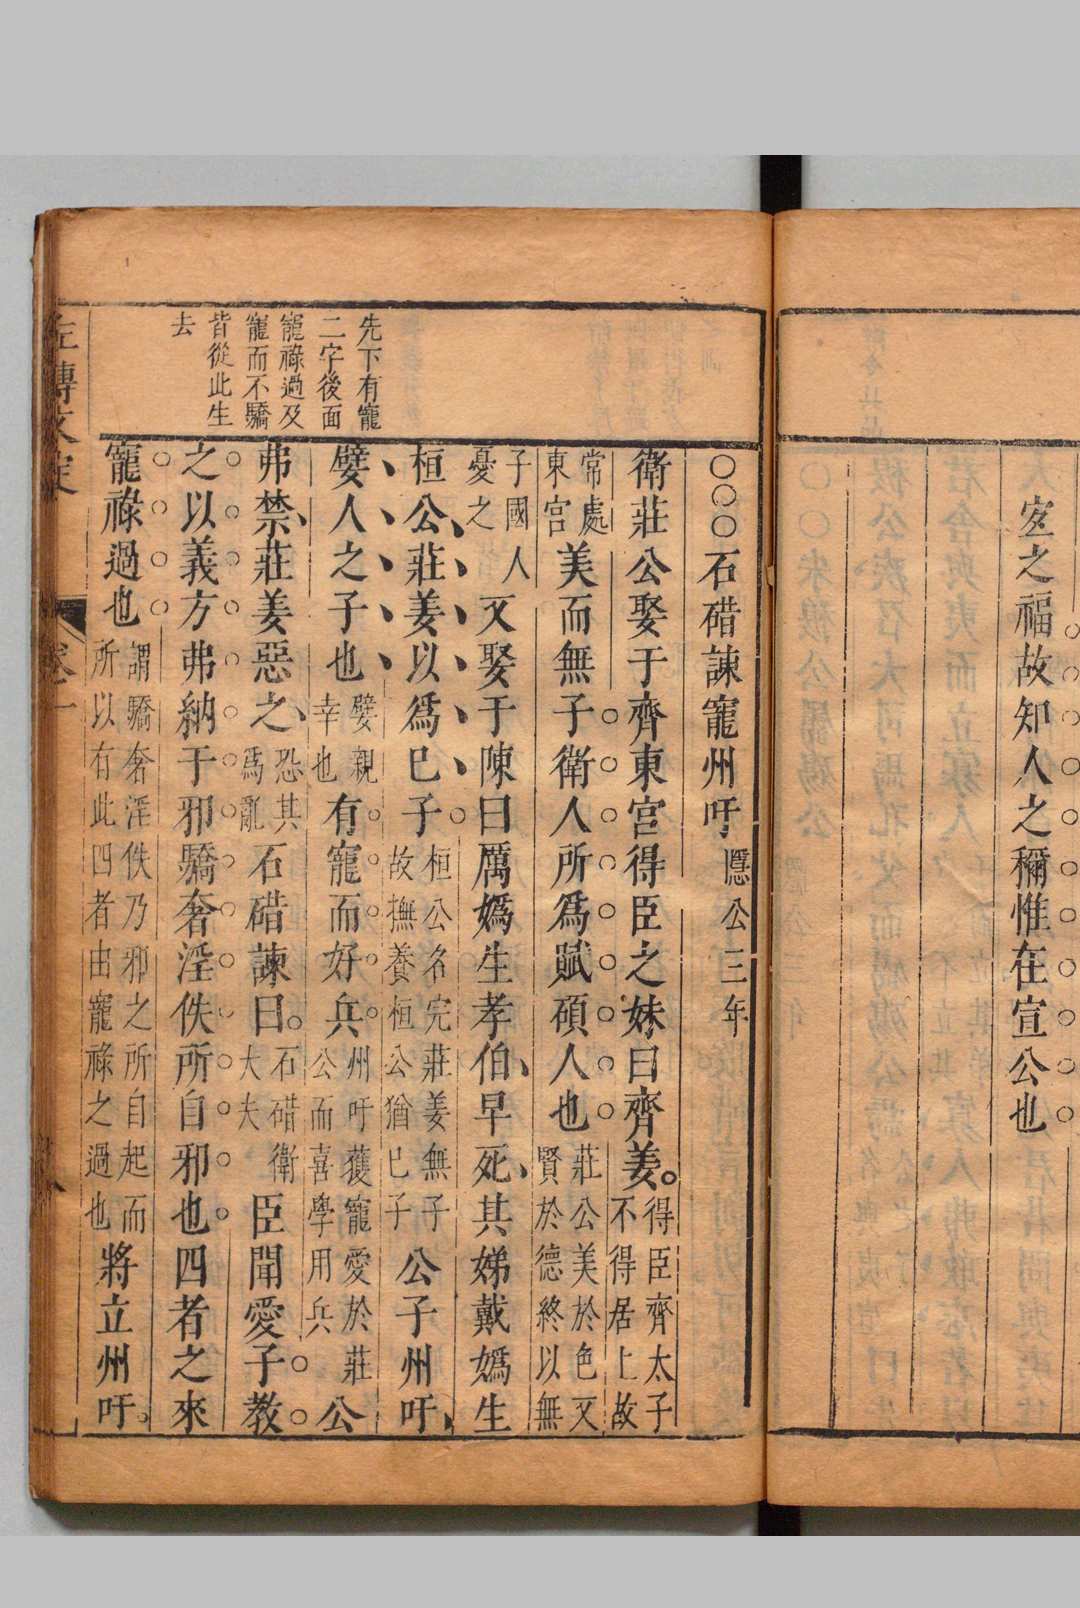 之福故知人之穪惟在宣公也
先下有寵
二字後面
寵祿過及
寵而不驕
皆從此生
去
○○○石碏諫寵州吁隱公三年
衛莊公娶于齊東宮得臣之妹曰齊姜。得臣齊太子不得居上故
常處東宮美而無子衛人所爲賦碩人也莊公美於色又賢於德終以無
子國人憂之又娶于陳曰厲嬀生孝伯、早死、其娣戴嬀生
桓公、莊姜以爲己子桓公名完莊姜無子故撫養桓公猶己子公子州吁、
嬖人之子也嬖親幸也有寵而好兵州吁獲寵愛於莊公而喜學用兵公
弗禁、莊姜惡之、恐其爲亂石碏諫曰。石碏衛大夫臣聞愛子教
之以義方弗納于邪驕奢淫佚所自邪也四者之來
寵祿過也謂驕奢淫佚乃邪之所自起而所以有此四者由寵祿之過也將立州吁。
左傳文定
卷一